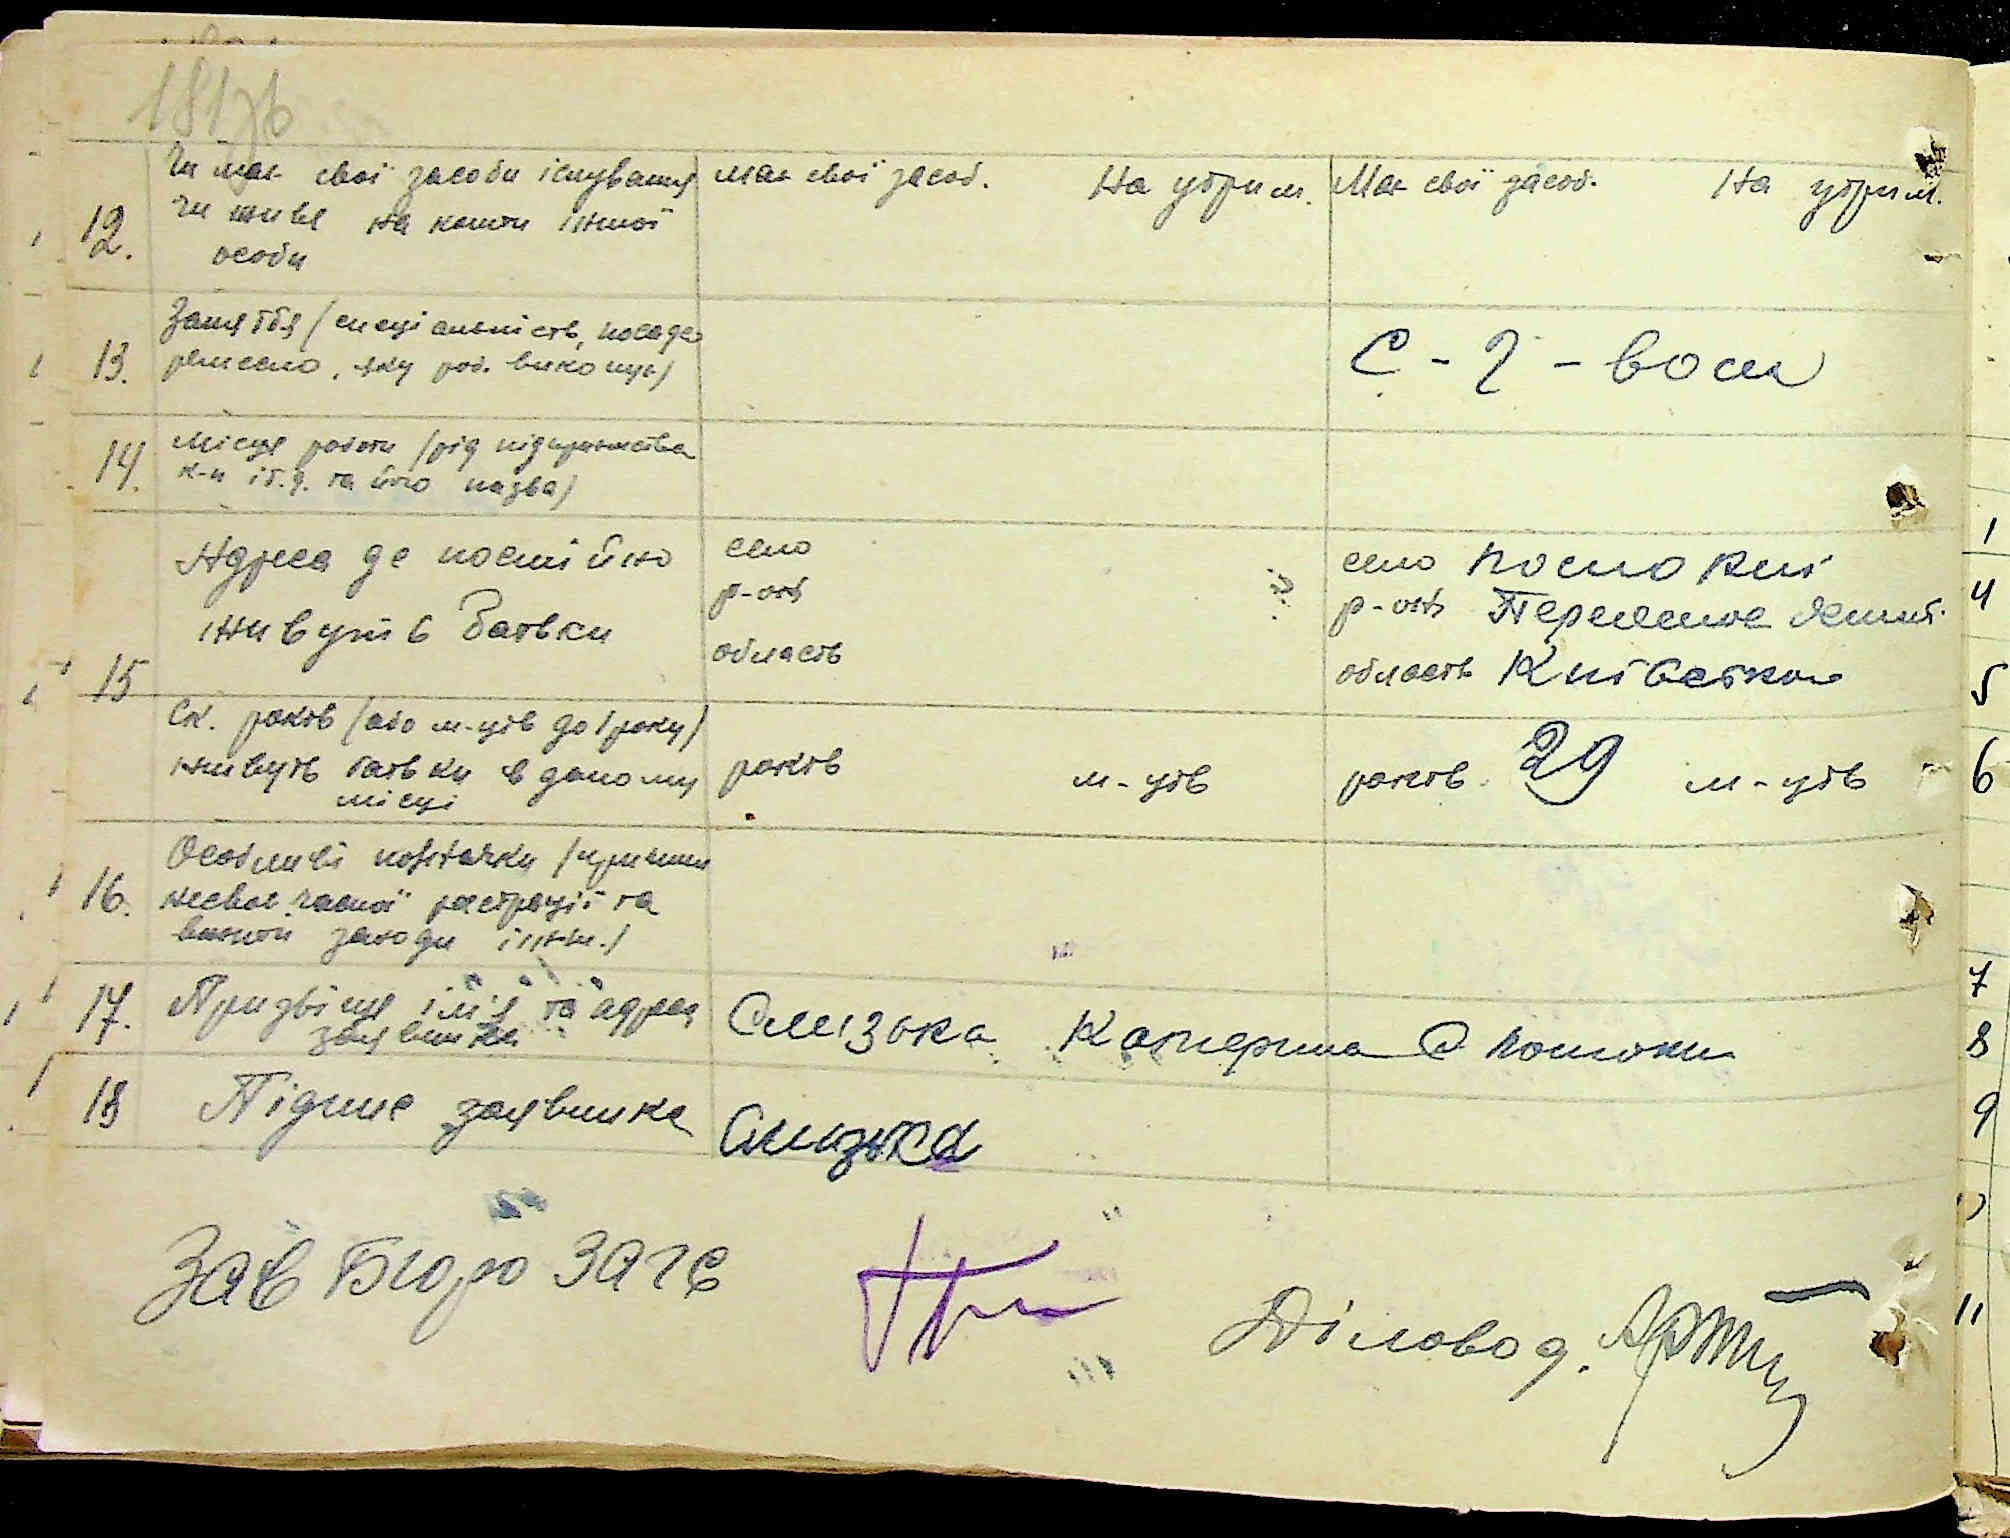 181зв
12. Чи має свої засоби існування має свої засоб. На утрим. Має свої засоб. На утрим.
чи живе на кошти іншої
особи
13. Заняття (спеціальність, посада
ремесло, яку роб. виконує) С-г-вом
14. Місце роботи (рід підприємства
к-п і т.д. та його назва)
15 Адреса де постійно
живуть батьки
село
р-он
область
село
р-он
область Київська
Ск. років (або м-ців до 1 року)
живуть батьки в даному
місці
років м-ців років 29 м-ців
16. Особливі помітки (причини
несвоєчасної реєстрації та
вжиті заходи і інш.)
17. Призвіще ім'я та адреса
заявника
Смізька Катерина С
18 Підпис заявника Смизька
Зав Бюро ЗАГС Діловод.
1
4
5
6
7
8
9
10
11